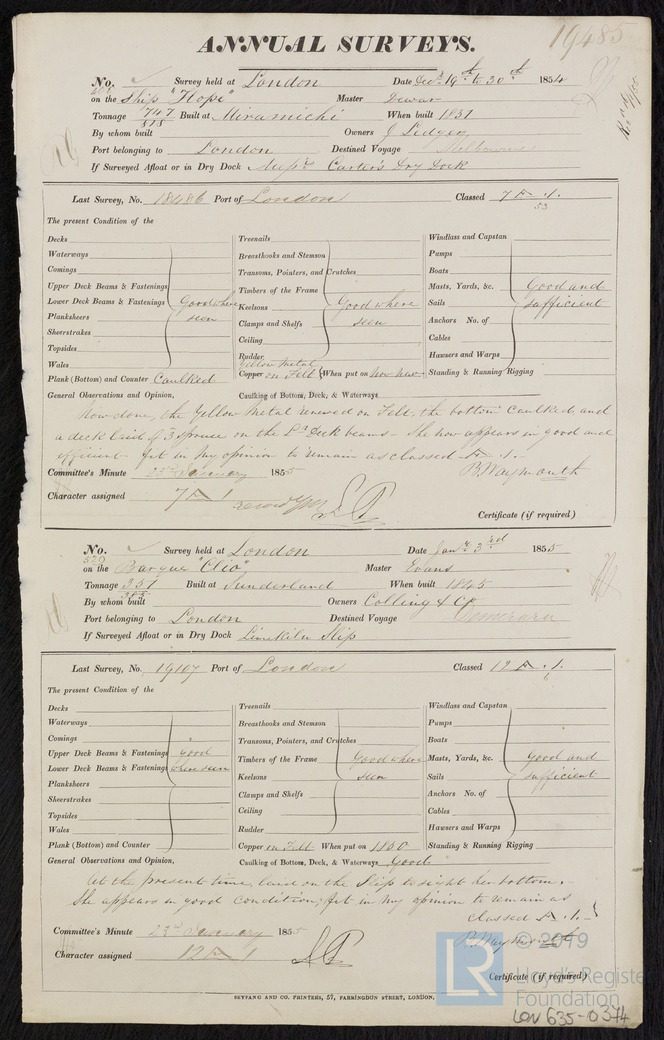 19485
ANNUAL SURVEYS.
No. Survey held at London Date Decr 19th to 30th 1854
on the Ship "Hope" Master Dewar
Tonnage 747 Built at Miramichi When built 1831
By whom built Owners J Ledgey
Port belonging to London Destined Voyage Melbourne
If Surveyed Afloat or in Dry Dock Messrs Carter's Dry Dock
Last Survey, No. 18486 Port of London Classed 7 A .1.
53
The present Condition of the
Decks
Waterways
Comings
Upper Deck Beams & Fastenings
Lower Deck Beams & Fastenings Good where
Planksheers seen
Sheerstrakes
Topsides
Wales
Plank (Bottom) and Counter Caulked
Treenails
Breasthooks and Stemson
Transoms, Pointers, and Crutches
Timbers of the Frame
Keelsons Good where
Clamps and Shelfs seen
Ceiling
Rudder
Yellow Metal
Copper on Felt When put on Now New
Windlass and Capstan
Pumps
Boats
Masts, Yards, &c. Good and
Sails sufficient
Anchors No. of
Cables
Hawsers and Warps
Standing & Running Rigging
General Observations and Opinion, Caulking of Bottom, Deck, & Waterways
Now done, the Yellow Metal renewed on Felt, the bottom caulked and
a deck laid of 3 Spruce on the Lr Deck beams - She now appears in good and
efficient fit in my opinion to remain as classed A .1.-
B. Waymouth
Committee's Minute 23rd January 1855
Character assigned 7 A 1
Certificate (if required)
No. Survey held at London Date Jany 3rd 1855
520
on the Barque "Clio" Master Evans
Tonnage 351 Built at Sunderland When built 1845
By whom built Owners Colling & Co
Port belonging to London Destined Voyage Demerara
If Surveyed Afloat or in Dry Dock Limekiln Slip
Last Survey, No. 19107 Port of London Classed 12 A .1.
6
The present Condition of the
Decks
Waterways
Comings
Upper Deck Beams & Fastenings Good
Lower Deck Beams & Fastenings where seen
Planksheers
Sheerstrakes
Topsides
Wales
Plank (Bottom) and Counter
Treenails
Breasthooks and Stemson
Transoms, Pointers, and Crutches
Timbers of the Frame Good where
Keelsons seen
Clamps and Shelfs
Ceiling
Rudder
Copper on Felt When put on 1850
Windlass and Capstan
Pumps
Boats
Masts, Yards, &c. Good and
Sails sufficient
Anchors No. of
Cables
Hawsers and Warps
Standing & Running Rigging
General Observations and Opinion, Caulking of Bottom, Deck, & Waterways Good
At the present time, laid on the Slip to sight her bottom.
She appears in good condition; fit in my opinion to remain as
classed A .1.-
B. Waymouth
Committee's Minute 23rd January 1855
Character assigned 12 A 1
Certificate (if required)
SEYFANG AND CO. PRINTERS, 57, FARRINGDON STREET, LONDON.
LR © 2019
Lloyd's Register
Foundation
LON 635-0374